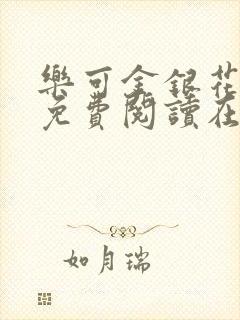 樂可金銀花
免費閱讀在
如月瑞